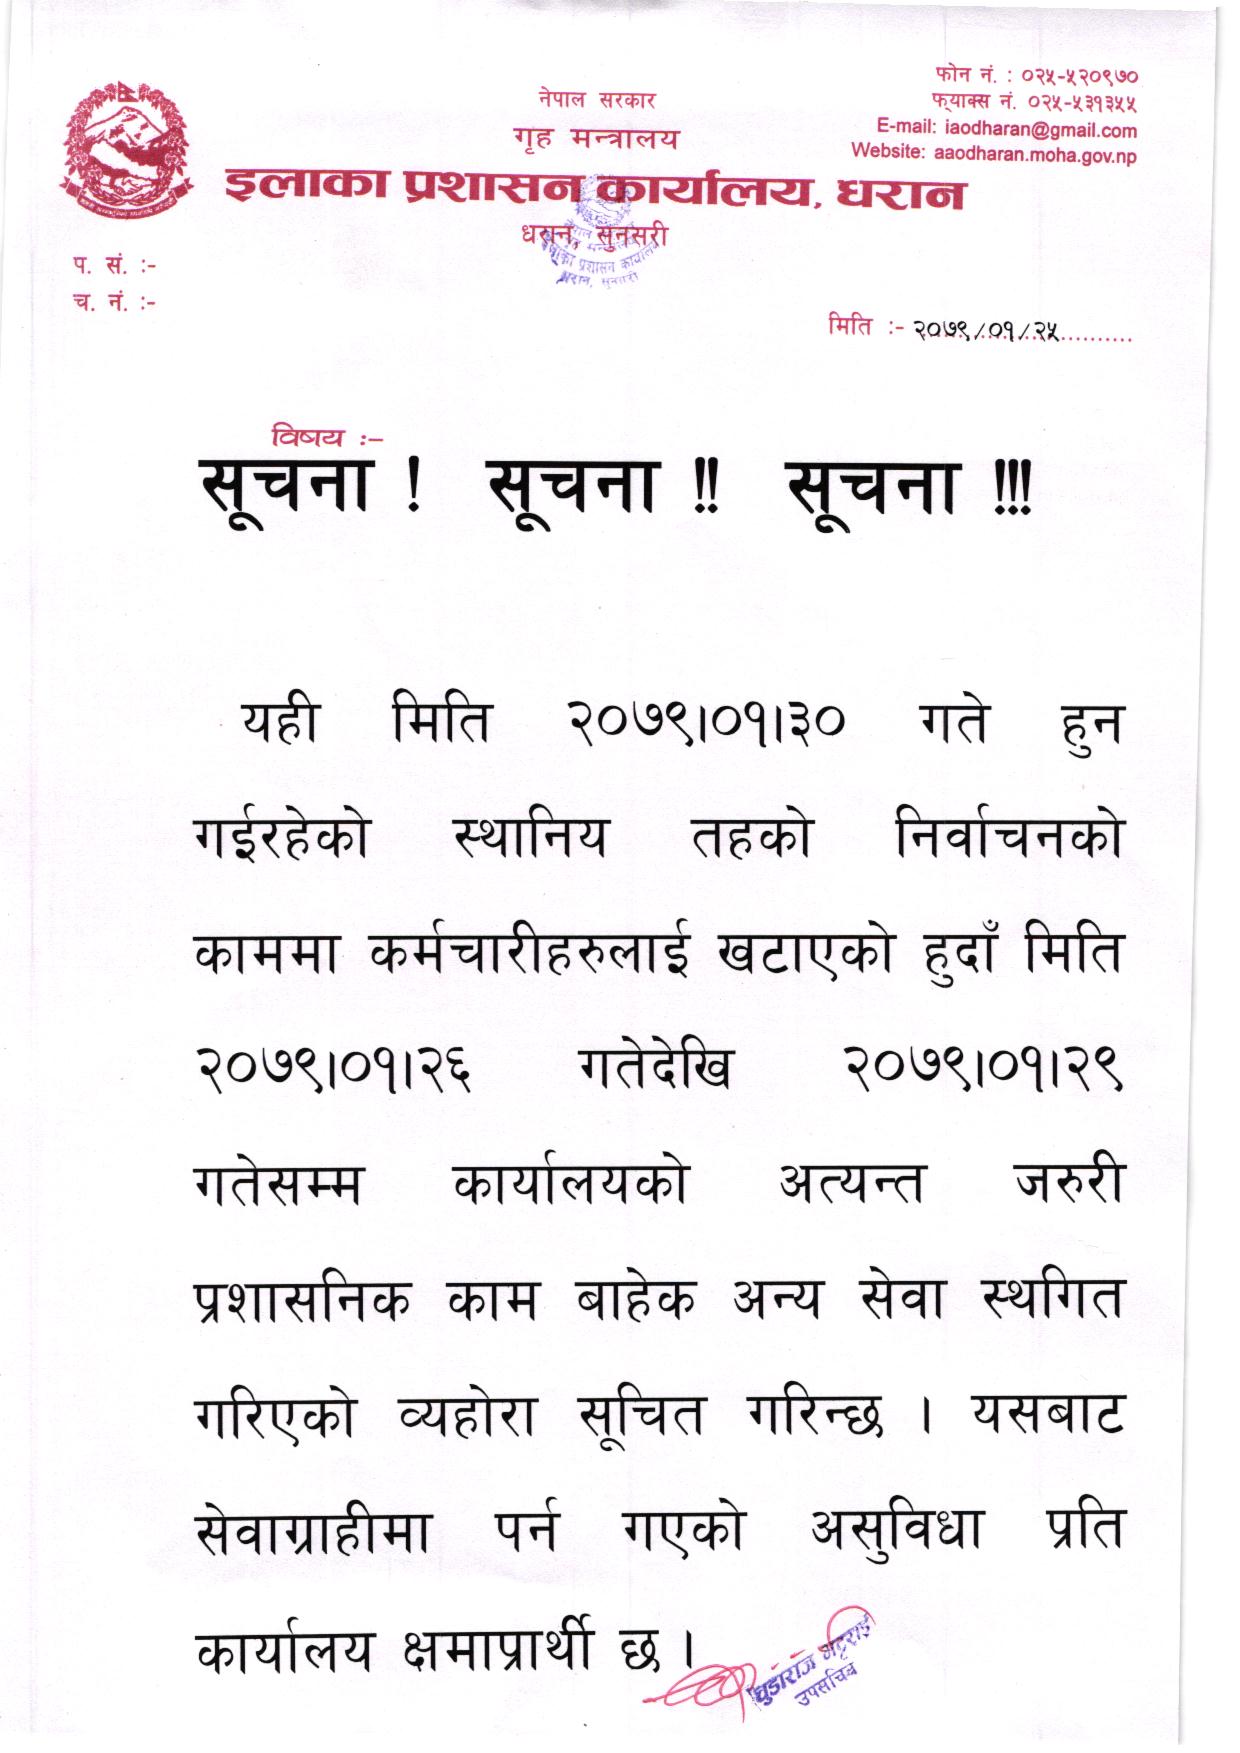 फोन नं. : ०२५-५२०९७०
फ्याक्स नं. ०२५-५३१३५५
E-mail: iaodharan@gmail.com
Website: aaodharan.moha.gov.np
नेपाल सरकार
गृह मन्त्रालय
इलाका प्रशासन कार्यालय, धरान
धरान, सुनसरी
नेपाल
गृह मन्त्रालय
इलाका प्रशासन कार्यालय
धरान, सुनसरी
प. सं. :-
च. नं. :-
मिति :- २०७९/०१/२५
विषय :-
सूचना ! सूचना !! सूचना !!!
यही मिति २०७९।०१।३० गते हुन
गईरहेको स्थानिय तहको निर्वाचनको
काममा कर्मचारीहरुलाई खटाएको हुदाँ मिति
२०७९।०१।२६ गतेदेखि २०७९।०१।२९
गतेसम्म कार्यालयको अत्यन्त जरुरी
प्रशासनिक काम बाहेक अन्य सेवा स्थगित
गरिएको व्यहोरा सूचित गरिन्छ । यसबाट
सेवाग्राहीमा पर्न गएको असुविधा प्रति
कार्यालय क्षमाप्रार्थी छ ।
चुडाराज भट्टराई
उपसचिव